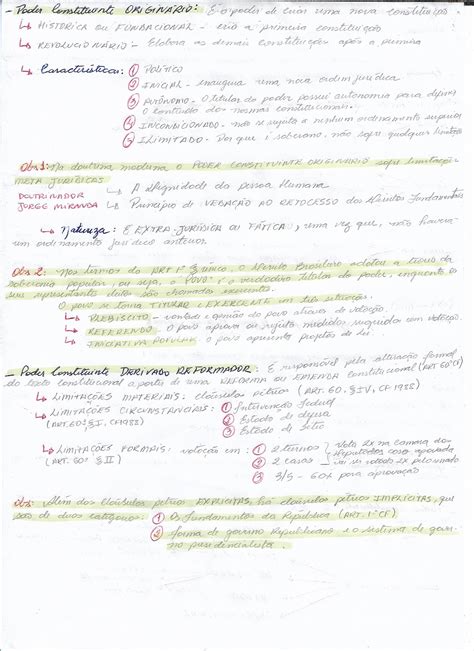 - Poder Constituinte ORIGINÁRIO: É o poder de criar uma nova constituição.
↳ HISTÓRICO ou FUNDACIONAL - cria a primeira constituição
↳ REVOLUCIONÁRIO - Elabora as demais constituições após a primeira
↳ Características: ① POLÍTICO
② INICIAL - inaugura uma nova ordem jurídica
③ AUTÔNOMO - O titular do poder possui autonomia para definir
o conteúdo das normas constitucionais.
④ INCONDICIONADO - não se sujeita a nenhum ordenamento superior
⑤ ILIMITADO. Por que é soberano, não sofre qualquer limitação
Obs 1: Na doutrina moderna o PODER CONSTITUINTE ORIGINÁRIO sofre limitações
META JURÍDICAS
DOUTRINADOR ↳ A Dignidade da pessoa Humana
JORGE MIRANDA ↳ Princípio de VEDAÇÃO AO RETOCESSO dos Direitos Fundamentais
↳ Natureza: É EXTRA-JURÍDICA ou FÁTICA, uma vez que, não havia
um ordenamento jurídico anterior.
Obs 2: Nos termos do ART 1º § único, o Direito Brasileiro adotou a teoria da
soberania popular, ou seja, o "POVO" é o verdadeiro titular do poder, enquanto os
seus representantes são chamados exercentes.
O povo se torna TITULAR e EXERCENTE em três situações:
↳ PLEBISCITO - vontade e opinião do povo através de votação.
↳ REFERENDO - O povo aprova ou rejeita medidas
↳ INICIATIVA POPULAR - o povo apresenta projetos de lei
- Poder Constituinte DERIVADO REFORMADOR: É responsável pela alteração formal
do texto constitucional a partir de uma REFORMA ou EMENDA constitucional (ART 60 CF)
↳ LIMITAÇÕES MATERIAIS: cláusulas pétrias (ART. 60. § IV, CF 1988)
↳ LIMITAÇÕES CIRCUNSTANCIAIS: ① Intervenção Federal
(ART. 60, § I. CF 1988) ② Estado de defesa
③ Estado de sítio
↳ LIMITAÇÕES FORMAIS: votação em: ① 2 turnos } Vota 2x na camara dos
(ART. 60º § II) ② 2 casas } deputados
③ 3/5 - 60% para aprovação
Obs: Além das cláusulas pétrias EXPLÍCITAS, há cláusulas pétrias IMPLÍCITAS, que
são de duas categorias: ① Os fundamentos da República (ART. 1º CF)
② forma de governo Republicano e o sistema de gover-
no presidencialista.